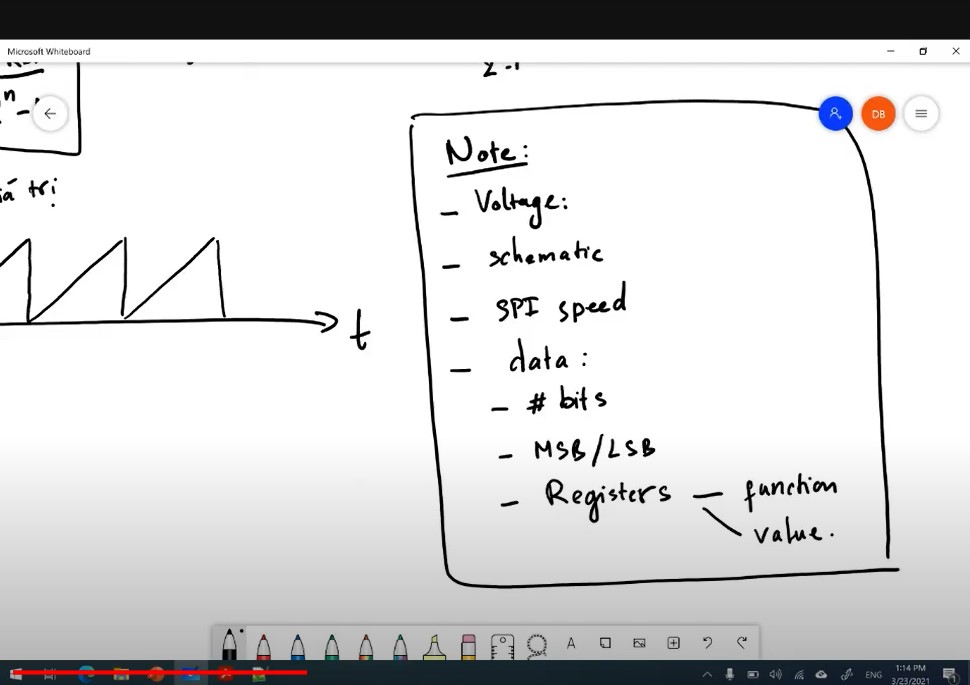 Microsoft Whiteboard
DB
Note:
- Voltage:
- schematic
- SPI speed
- data:
- # bits
- MSB/LSB
- Registers - function
value.
trị
t
A
ENG
1:14 PM
3/23/2021